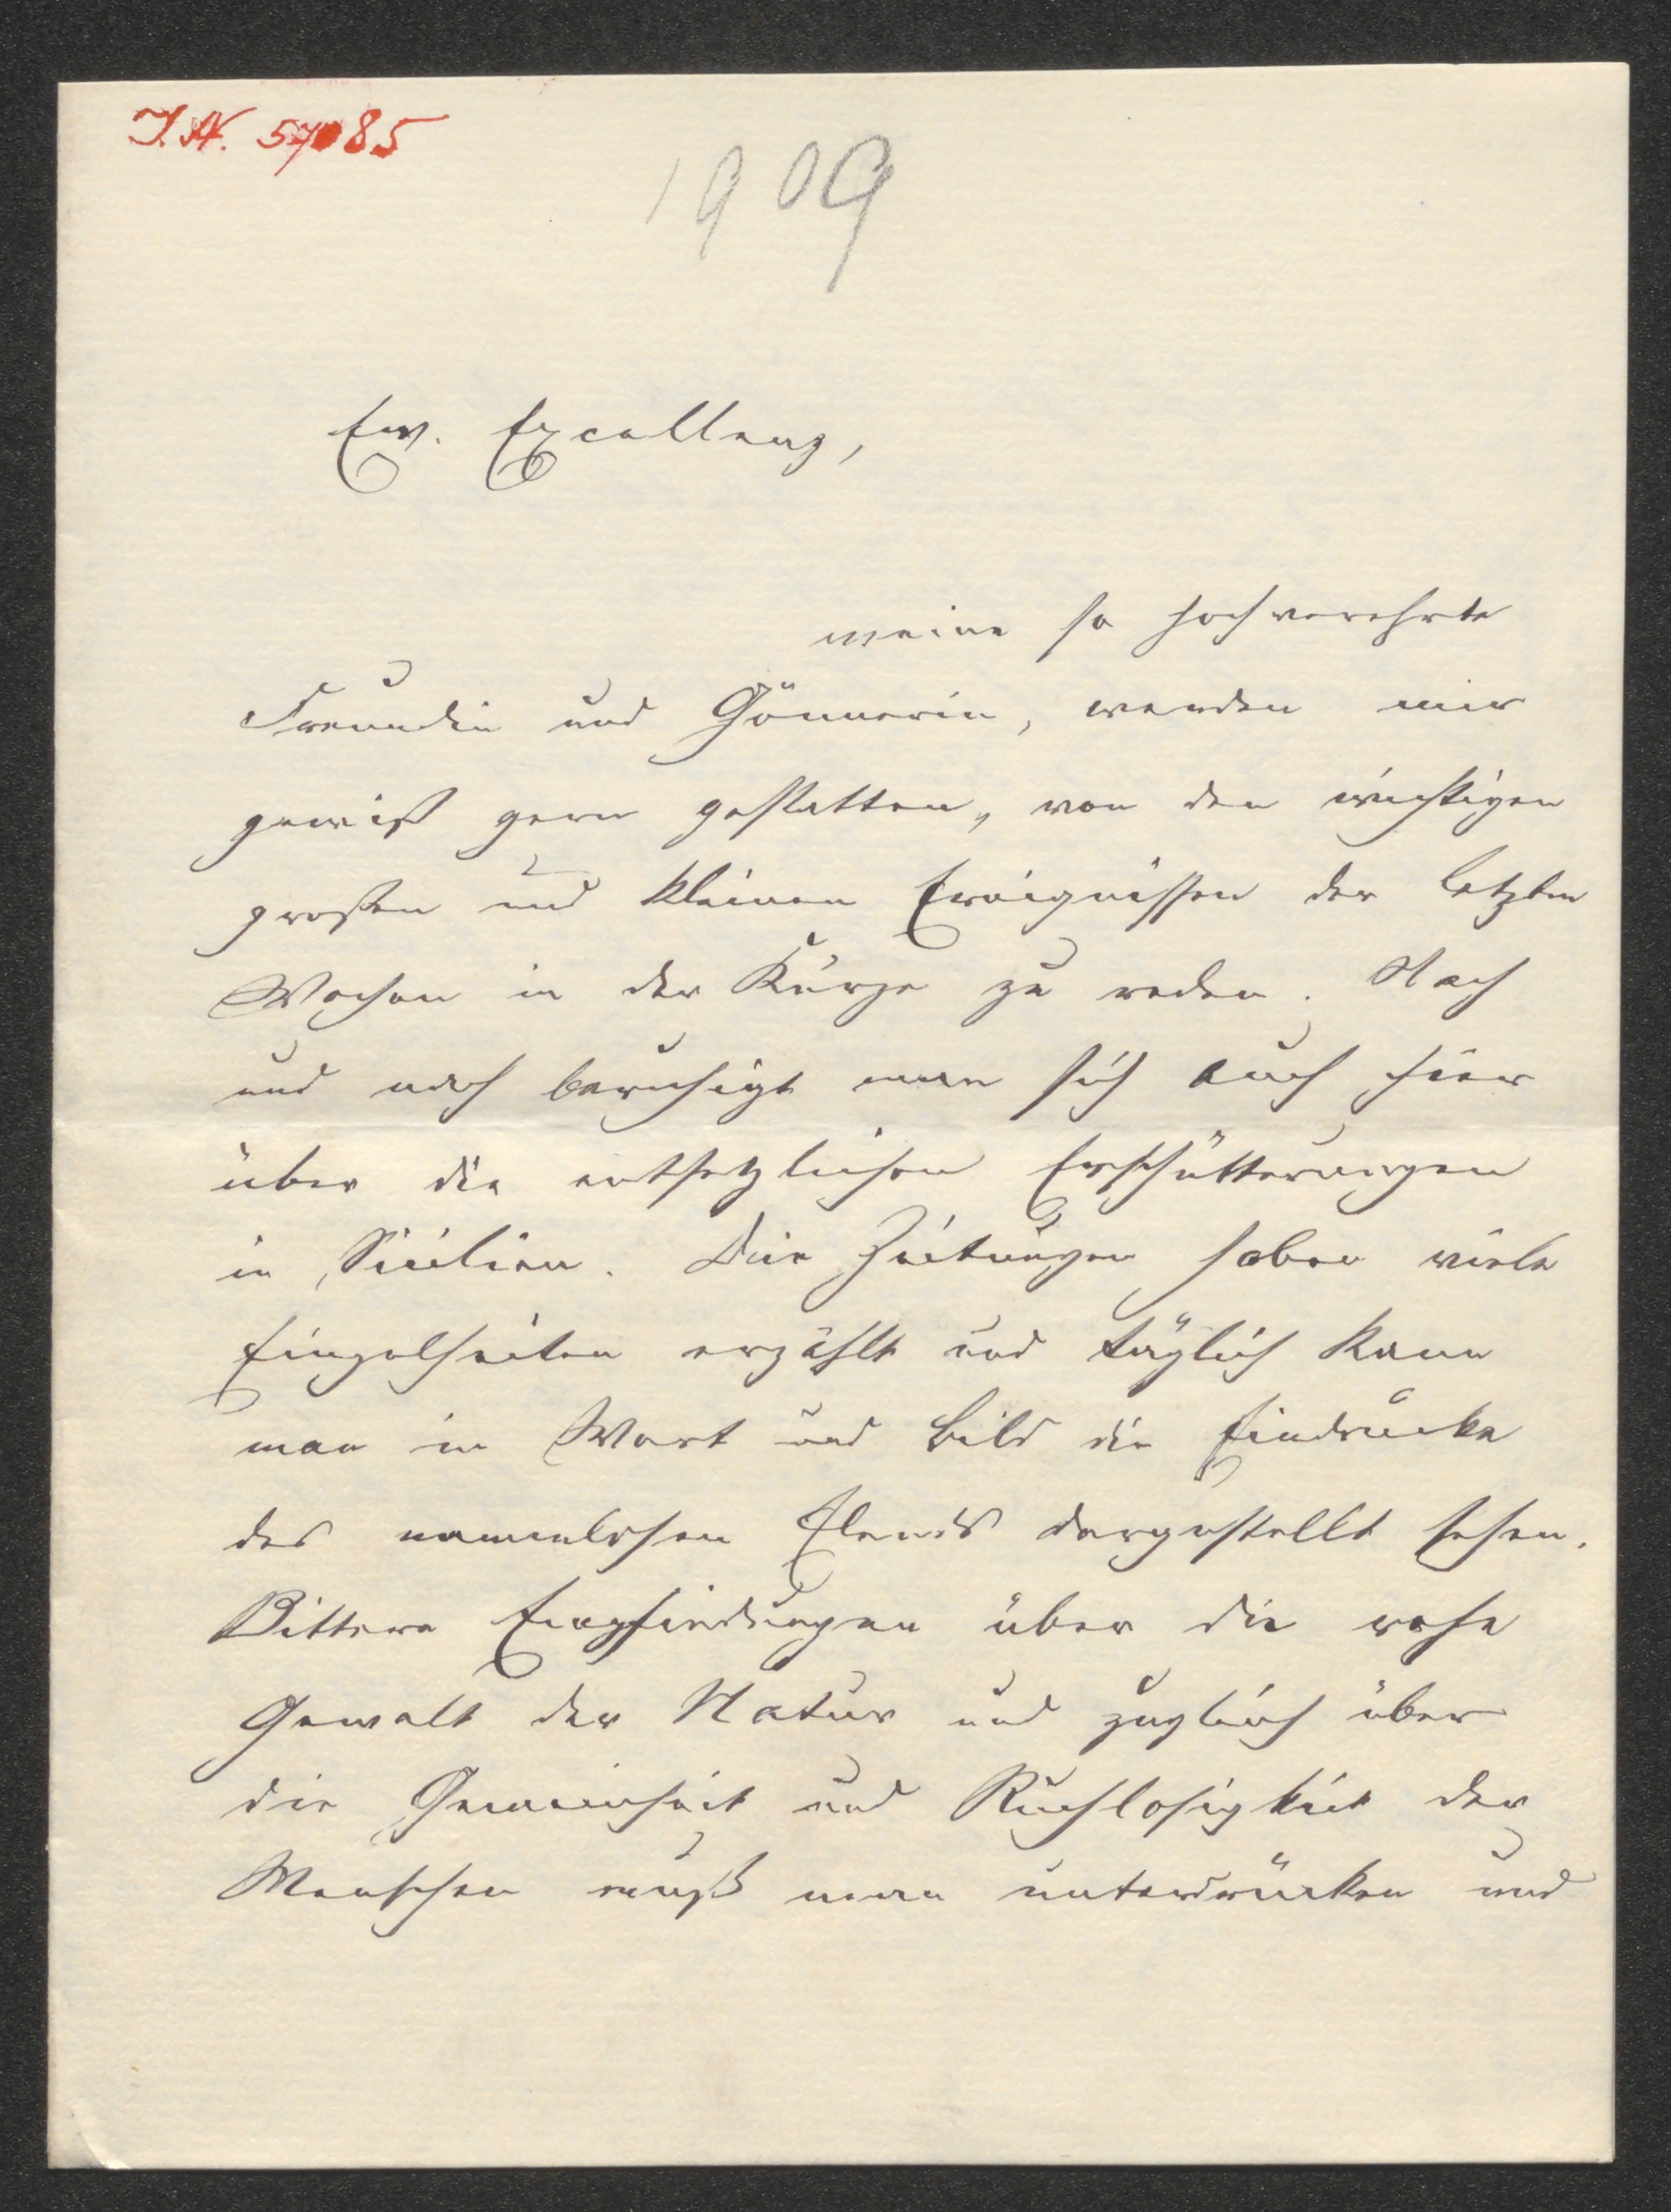 J.N. 57085
1909
Ew. Excellenz,
meine so hochverehrte
Freundin und Gönnerin, werden mir
gewiß gern gestatten, von den wichtigen
großen und kleinen Ereignissen der letzten
Wochen in der Kürze zu reden. Nach
und nach beruhigt man sich auch hier
über die entsetzlichen Erschütterungen
in Sicilien. Die Zeitungen haben viele
Einzelheiten erzählt und täglich kann
man in Wort und Bild die Eindrücke
des namenlosen Elends dargestellt sehen.
Bittere Empfindungen über die rohe
Gewalt der Natur und zugleich über
die Gemeinheit und Ruchlosigkeit der
Menschen muß man unterdrücken und